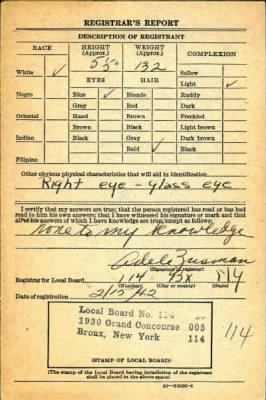 REGISTRAR'S REPORT
DESCRIPTION OF REGISTRANT
RACE
HEIGHT
(Approx.)
WEIGHT
(Approx.)
COMPLEXION
5'5"
132
White ✓
Sallow
EYES
HAIR
Light ✓
Negro
Blue ✓
Blonde
Ruddy
Gray
Red
Dark
Oriental
Hazel
Brown
Freckled
Brown
Black
Light brown
Indian
Black
Gray
Dark brown
Bald ✓
Black
Filipino
Other obvious physical characteristics that will aid in identification
Right eye - glass eye
I certify that my answers are true; that the person registered has read or has had
read to him his own answers; that I have witnessed his signature or mark and that
all of his answers of which I have knowledge are true, except as follows:
None to my knowledge
Adele Zusman
(Signature of registrar)
Registrar for Local Board 114 Bx NY
Date of registration 2/15/42
Local Board No. 114
1930 Grand Concourse 005
Bronx, New York 114
114
(STAMP OF LOCAL BOARD)
(The stamp of the Local Board having jurisdiction of the registrant
shall be placed in the above space)